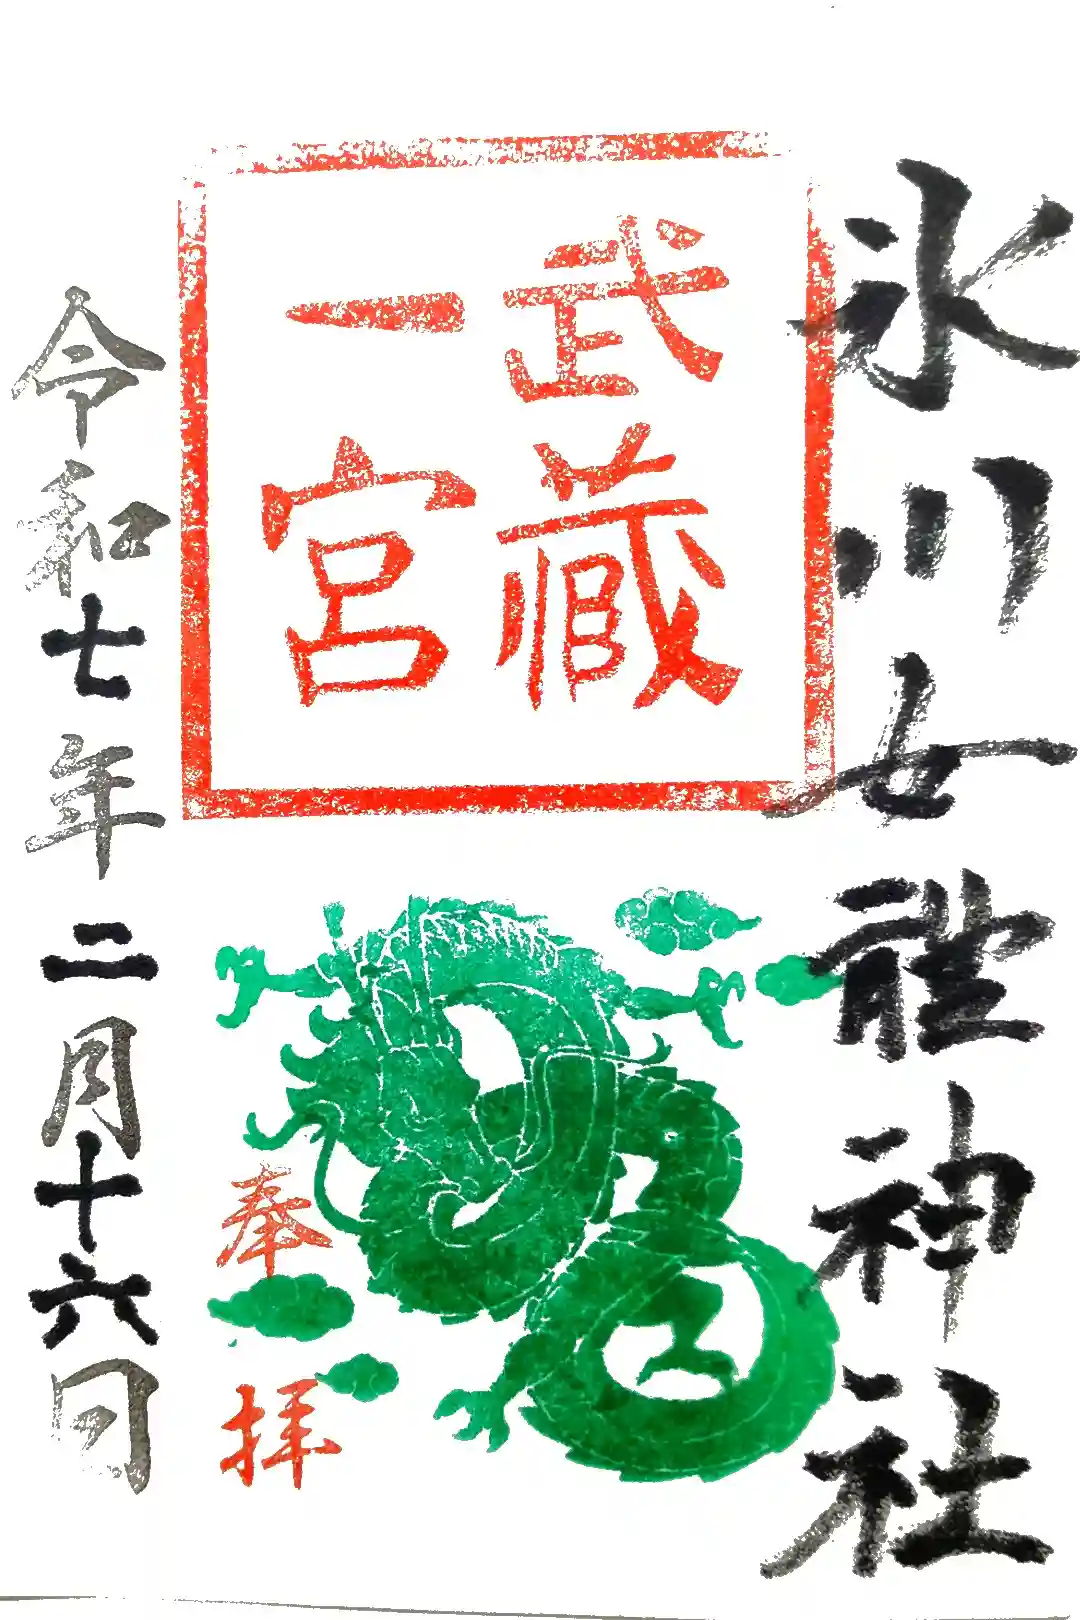 氷川女體神社
武蔵
一宮
奉拝
令和七年二月十六日